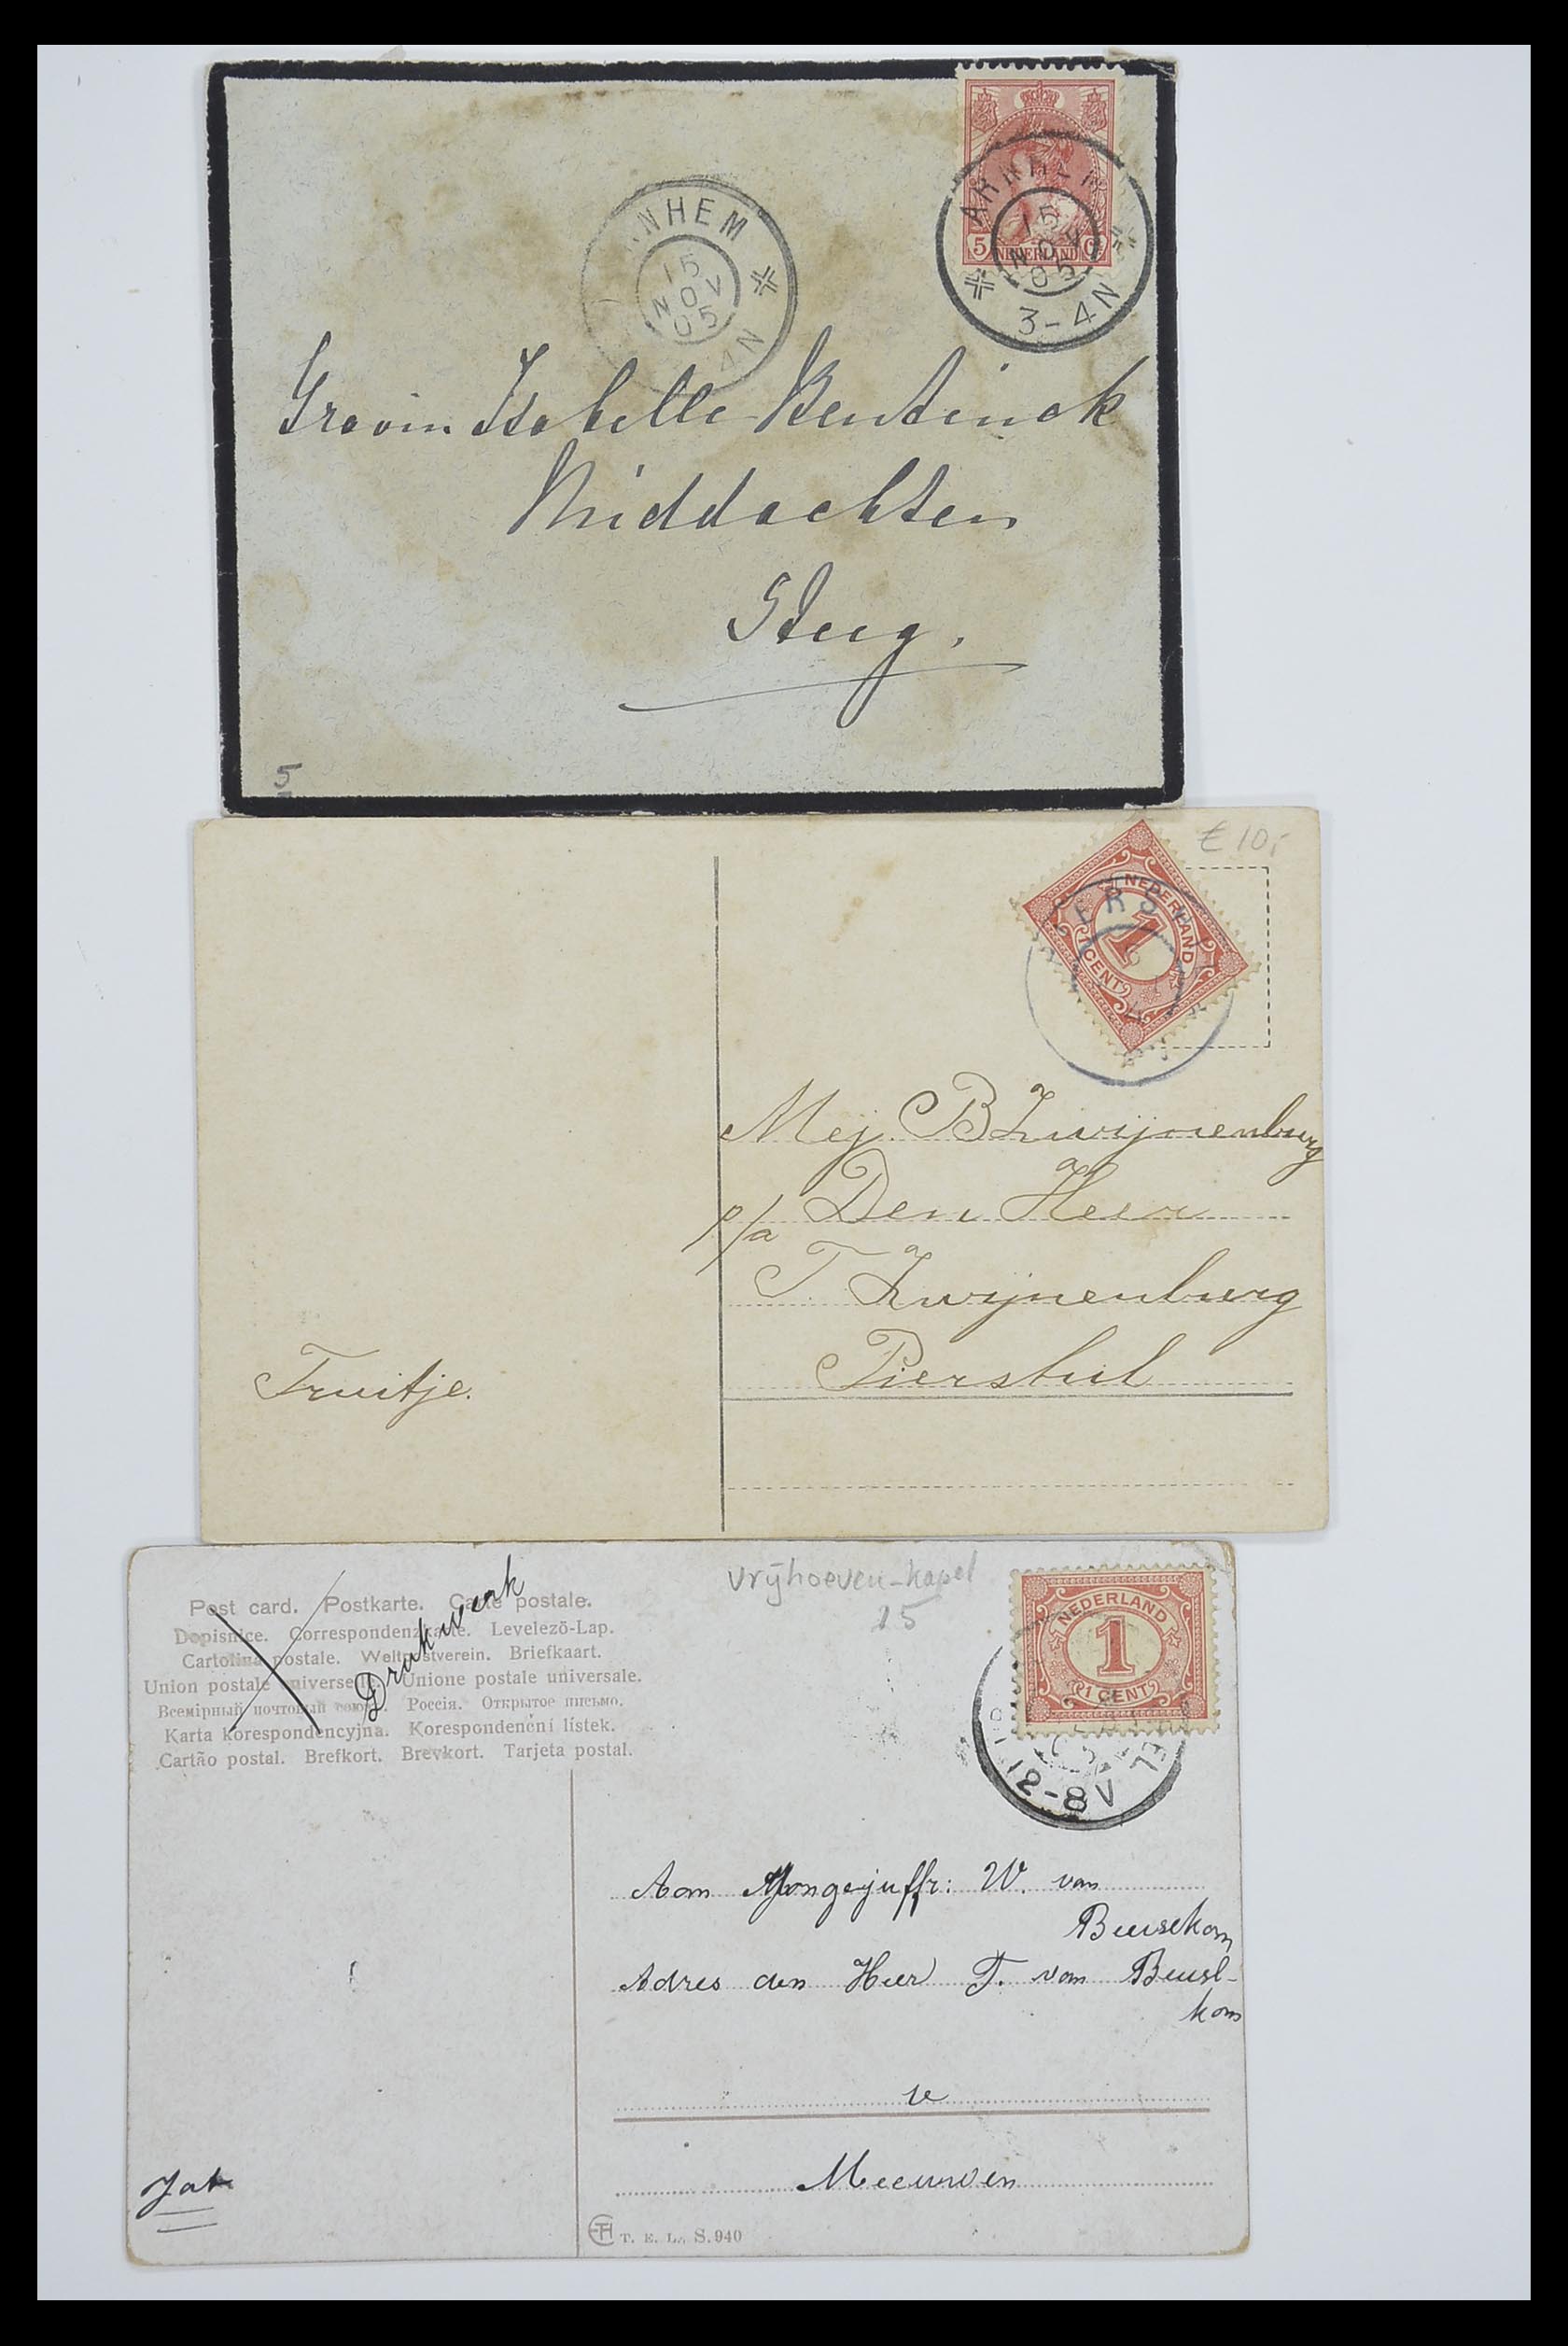 5 NEDERLAND C
ARNHEM
15
NOV
05
3-4N
NHEM
15
NOV
05
4N
Gravin Isabelle Bentinck
Middachten
Steeg.
5
€ 10,-
NEDERLAND
1
1 CENT
ERS
Mej. B Zwijnenburg
p/a Den Heer
T. Zwijnenburg
Piershil
Truitje.
Vrijhoeven-kapel
15
NEDERLAND
1
1 CENT
12-8V
Post card. Postkarte. Carte postale.
Dopisnice. Correspondenzkarte. Levelezö-Lap.
Cartolina postale. Weltpostverein. Briefkaart.
Union postale universelle. Unione postale universale.
Всемірный почтовый союз. Россія. Открытое письмо.
Karta korespondencyjna. Korespondenční lístek.
Cartão postal. Brefkort. Brevkort. Tarjeta postal.
Drukwerk
Aan Jongejuffr: W. van
Beusekom
Adres den Heer T. van Beuse-
kom
te
Meeuwen
T. E. L. S. 940